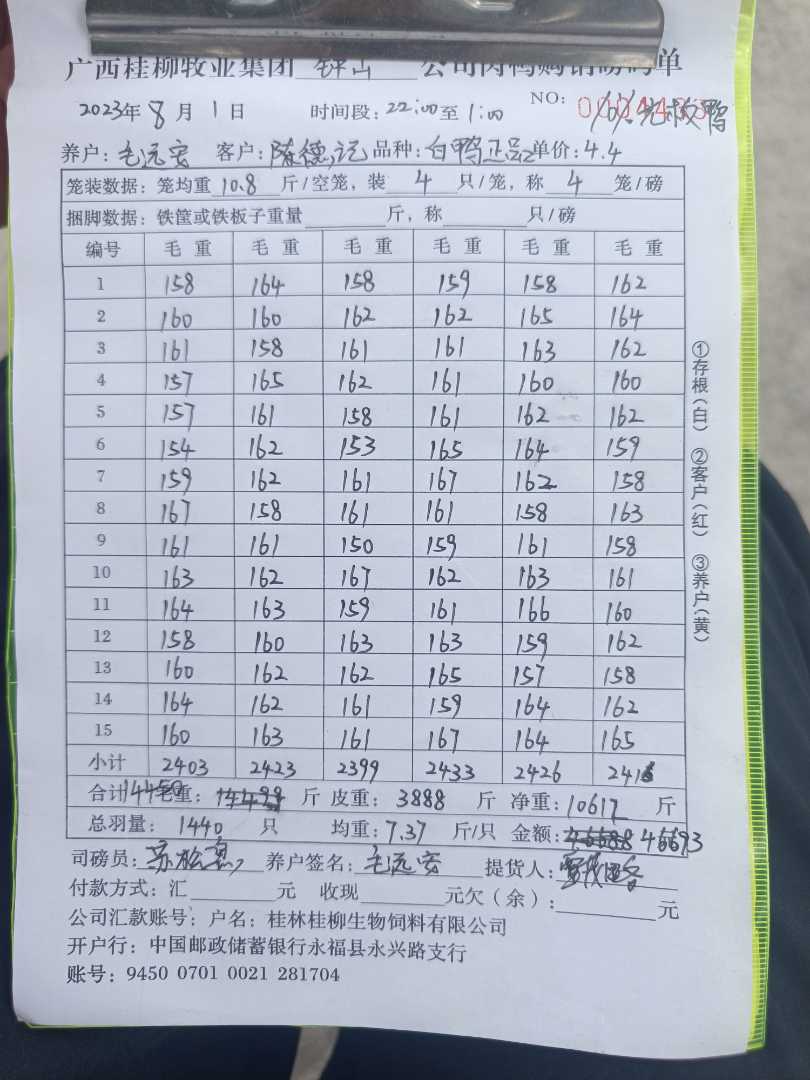 广西桂柳牧业集团 钟山 公司肉鸭购销磅码单
2023年 8 月 1 日 时间段: 22:00 至 1:00 NO:
养户: 毛远宏 客户: 陈德记 品种: 白鸭正品 单价: 4.4
笼装数据: 笼均重 10.8 斤/空笼, 装 4 只/笼, 称 4 笼/磅
捆脚数据: 铁筐或铁板子重量 斤, 称 只/磅
编号 毛 重 毛 重 毛 重 毛 重 毛 重 毛 重
1 158 164 158 159 158 162
2 160 160 162 162 165 164
3 161 158 161 161 163 162
4 157 165 162 161 160 160
5 157 161 158 161 162 162
6 154 162 153 165 164 159
7 159 162 161 167 162 158
8 167 158 161 161 158 163
9 161 161 150 159 161 158
10 163 162 167 162 163 161
11 164 163 159 161 166 160
12 158 160 163 163 159 162
13 160 162 162 165 157 158
14 164 162 161 159 164 162
15 160 163 161 167 164 165
小计 2403 2423 2399 2433 2426 2416
合计毛重: 斤 皮重: 3888 斤 净重: 10612 斤
总羽量: 1440 只 均重: 7.37 斤/只 金额: 46693
司磅员: 养户签名: 毛远宏 提货人:
付款方式: 汇 元 收现 元欠(余): 元
公司汇款账号: 户名: 桂林桂柳生物饲料有限公司
开户行: 中国邮政储蓄银行永福县永兴路支行
账号: 9450 0701 0021 281704
①存根(白) ②客户(红) ③养户(黄)